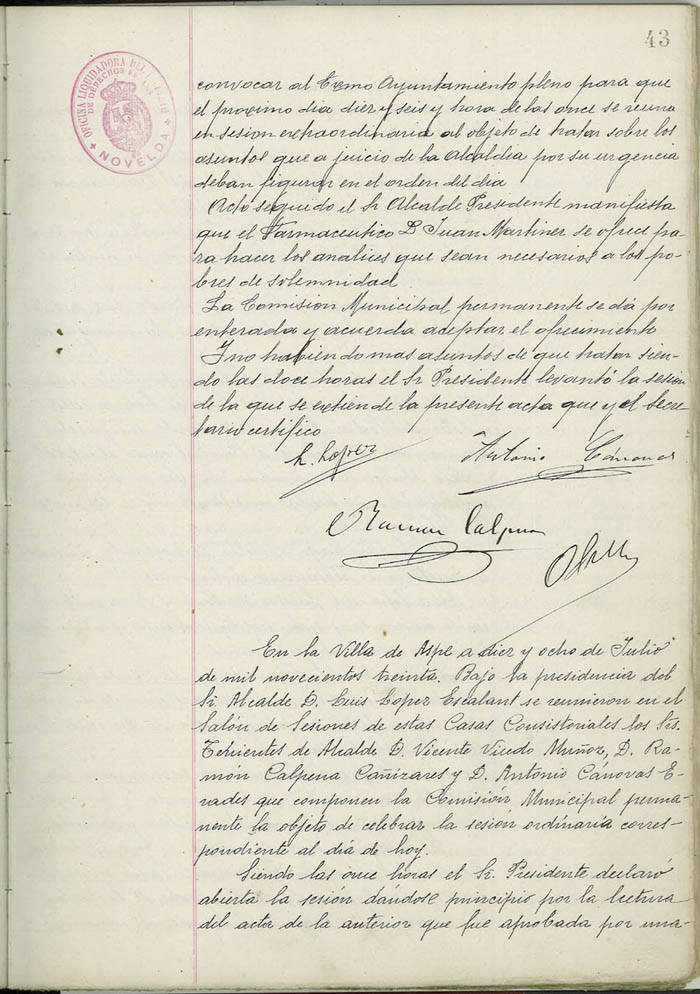 43
OFICINA LIQUIDADORA DEL
DE DERECHOS
NOVELDA
convocar al Exmo Ayuntamiento pleno para que
el proximo dia diez y seis y hora de las once se reuna
en sesion extraordinaria al objeto de tratar sobre los
asuntos que a juicio de la Alcaldia por su urgencia
deban figurar en el orden del dia
Acto seguido el Sr Alcalde Presidente manifiesta
que el Farmaceutico D Juan Martinez se ofrece pa
ra hacer los analices que sean necesarios a los po-
bres de solemnidad.
La Comision Municipal permanente se dá por
enterada y acuerda aceptar el ofrecimiento
Y no habiendo mas asuntos de que tratar sien-
do las doce horas el Sr Presidente levantó la sesion
de la que se extiende la presente acta que yo el Secre
tario certifico
L. Lopez
Antonio Cánovas
Ramon Calpena
En la Villa de Aspe a diez y ocho de Julio
de mil novecientos treinta. Bajo la presidencia del
Sr. Alcalde D. Luis Lopez Escalant se reunieron en el
Salón de Sesiones de estas Casas Consistoriales los Srs.
Tenientes de Alcalde D. Vicente Vicedo Muñoz, D. Ra-
món Calpena Cañizares y D. Antonio Cánovas E-
rades que componen la Comisión Municipal perma-
nente la objeto de celebrar la sesión ordinaria corres-
pondiente al día de hoy.
Siendo las once horas el Sr. Presidente declaró
abierta la sesión dándose principio por la lectura
del acta de la anterior que fue aprobada por una-